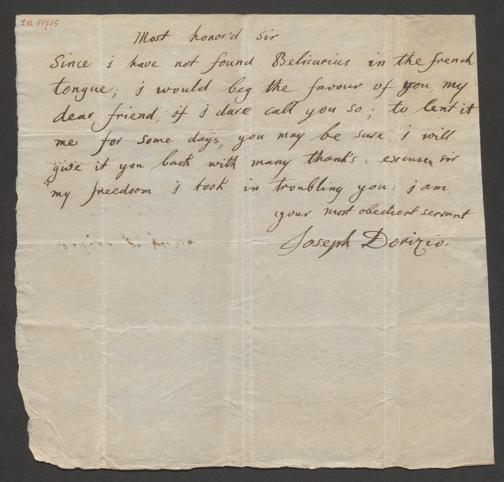 Most honor'd Sir
Since i have not found Belisarius in the french
tongue; i would beg the favour of you, my
dear friend, if i dare call you so; to lent it
me for some days, you may be sure i will
give it you back with many thanks: excuse, sir
my freedoom i took in troubling you: i am
your most obedient servant
Joseph Dorizio.